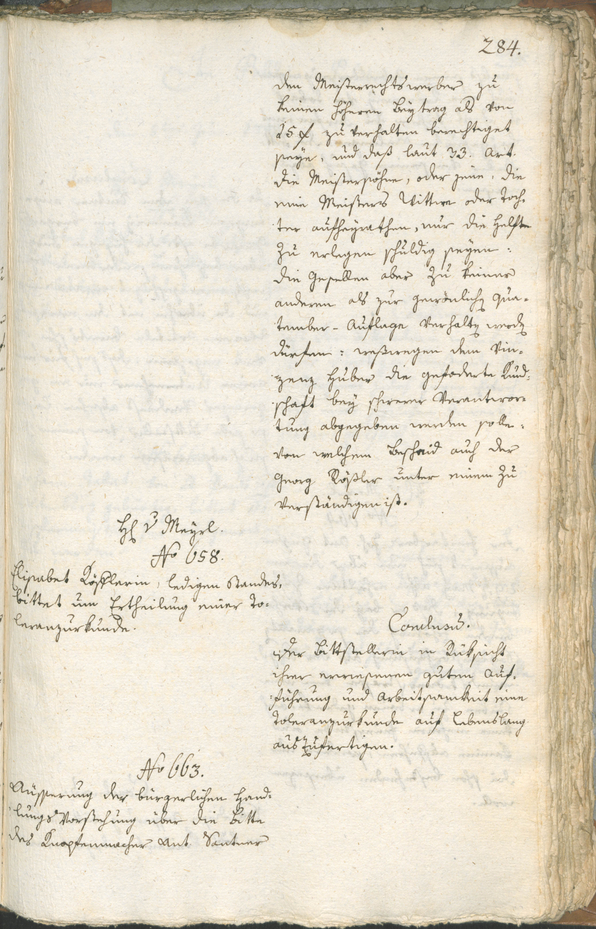 284.
den Meisterrechtswerber zu
keinen höheren Beytrag als von
15 f zu verhalten berechtiget
seye, und daß laut 33. Art.
die Meistersöhne, oder jene, die
eine Meisters Wittwe oder Toch-
ter aufheyrathen, nur die Helfte
zu erlegen schuldig seyen:
die Gesellen aber zu keiner
anderen als zur gewöhnlichen Qua-
tember-Auflage verhalten werden
dürfen: weßwegen dem Vin-
zenz Huber die geforderte Kund-
schaft bey schwerer Verantwor-
tung abgegeben werden solle,
von welchem Bescheid auch der
Georg Rößler unter einem zu
verständigen ist.
H v Meyrl.
No 658.
Elisabet Köfflerin, ledigen Standes,
bittet um Ertheilung einer To-
leranzurkunde.
Conclusū.
Der Bittstellerin in Rüksicht
ihrer erwiesenen guten Auf-
führung und Arbeitsamkeit eine
Toleranzurkunde auf Lebenslang
auszufertigen.
No 663.
Äusserung der bürgerlichen Hand-
lungs Vorstehung über die Bitte
des Knopfenmacher Ant. Santner